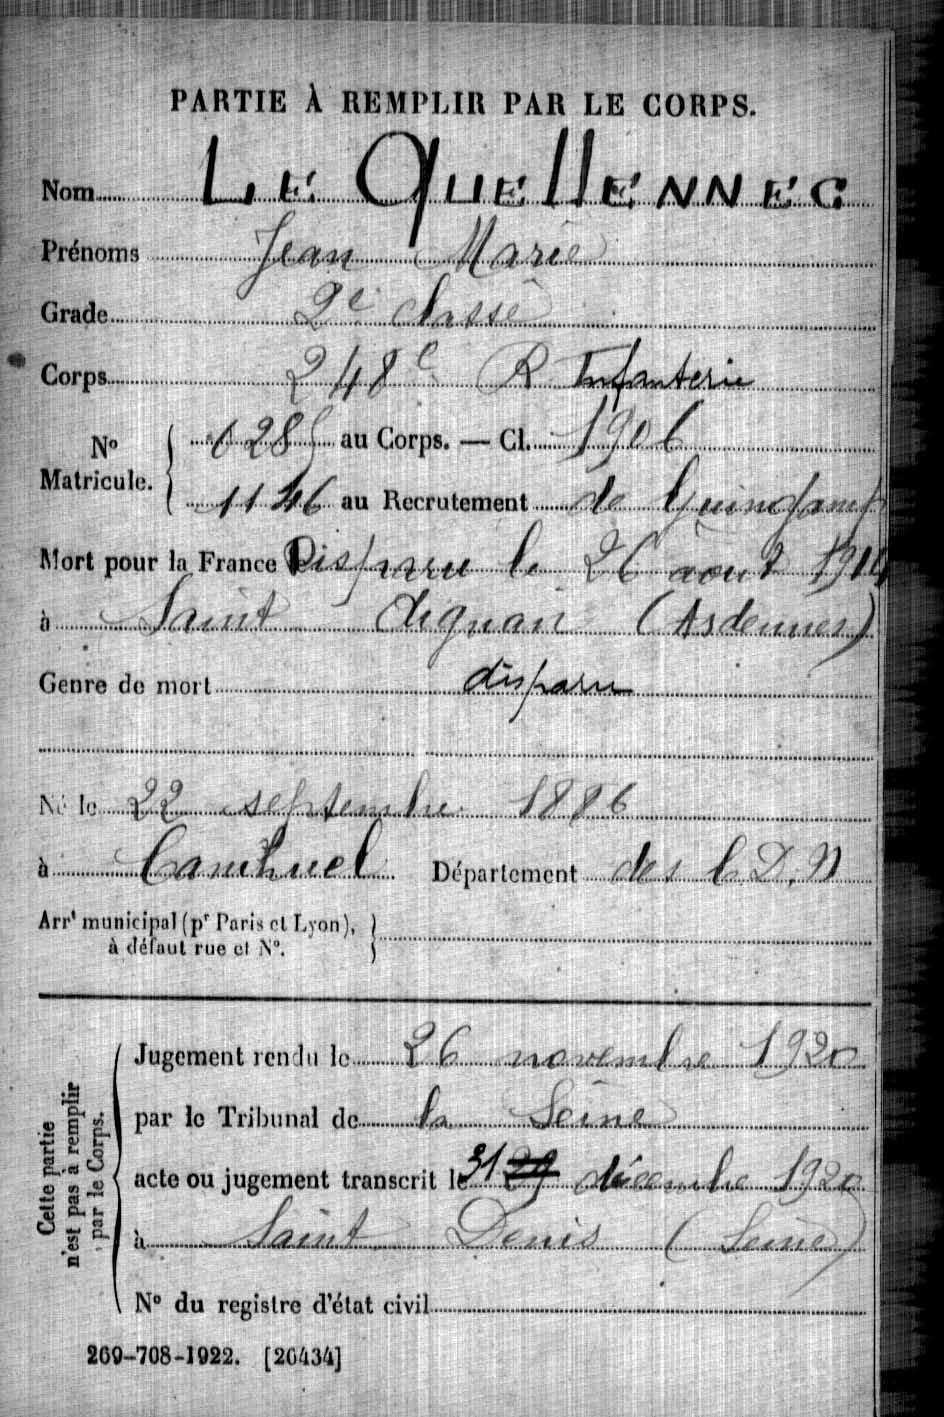 PARTIE À REMPLIR PAR LE CORPS.
Nom LE QUELLENNEC
Prénoms Jean Marie
Grade 2e classe
Corps 248e R Infanterie
No Matricule. 6285 au Corps. — Cl. 1906
1146 au Recrutement de Guingamp
Mort pour la France Disparu le 26 août 1914
à Saint Aignan (Ardennes)
Genre de mort disparu
Né le 22 septembre 1886
à Camlhuel Département des C.D.N
Arrt municipal (pr Paris et Lyon),
à défaut rue et No.
Cette partie n'est pas à remplir par le Corps.
Jugement rendu le 26 novembre 1920
par le Tribunal de la Seine
acte ou jugement transcrit le 31 29 décembre 1920
à Saint Denis (Seine)
No du registre d'état civil
269-708-1922. [26434]